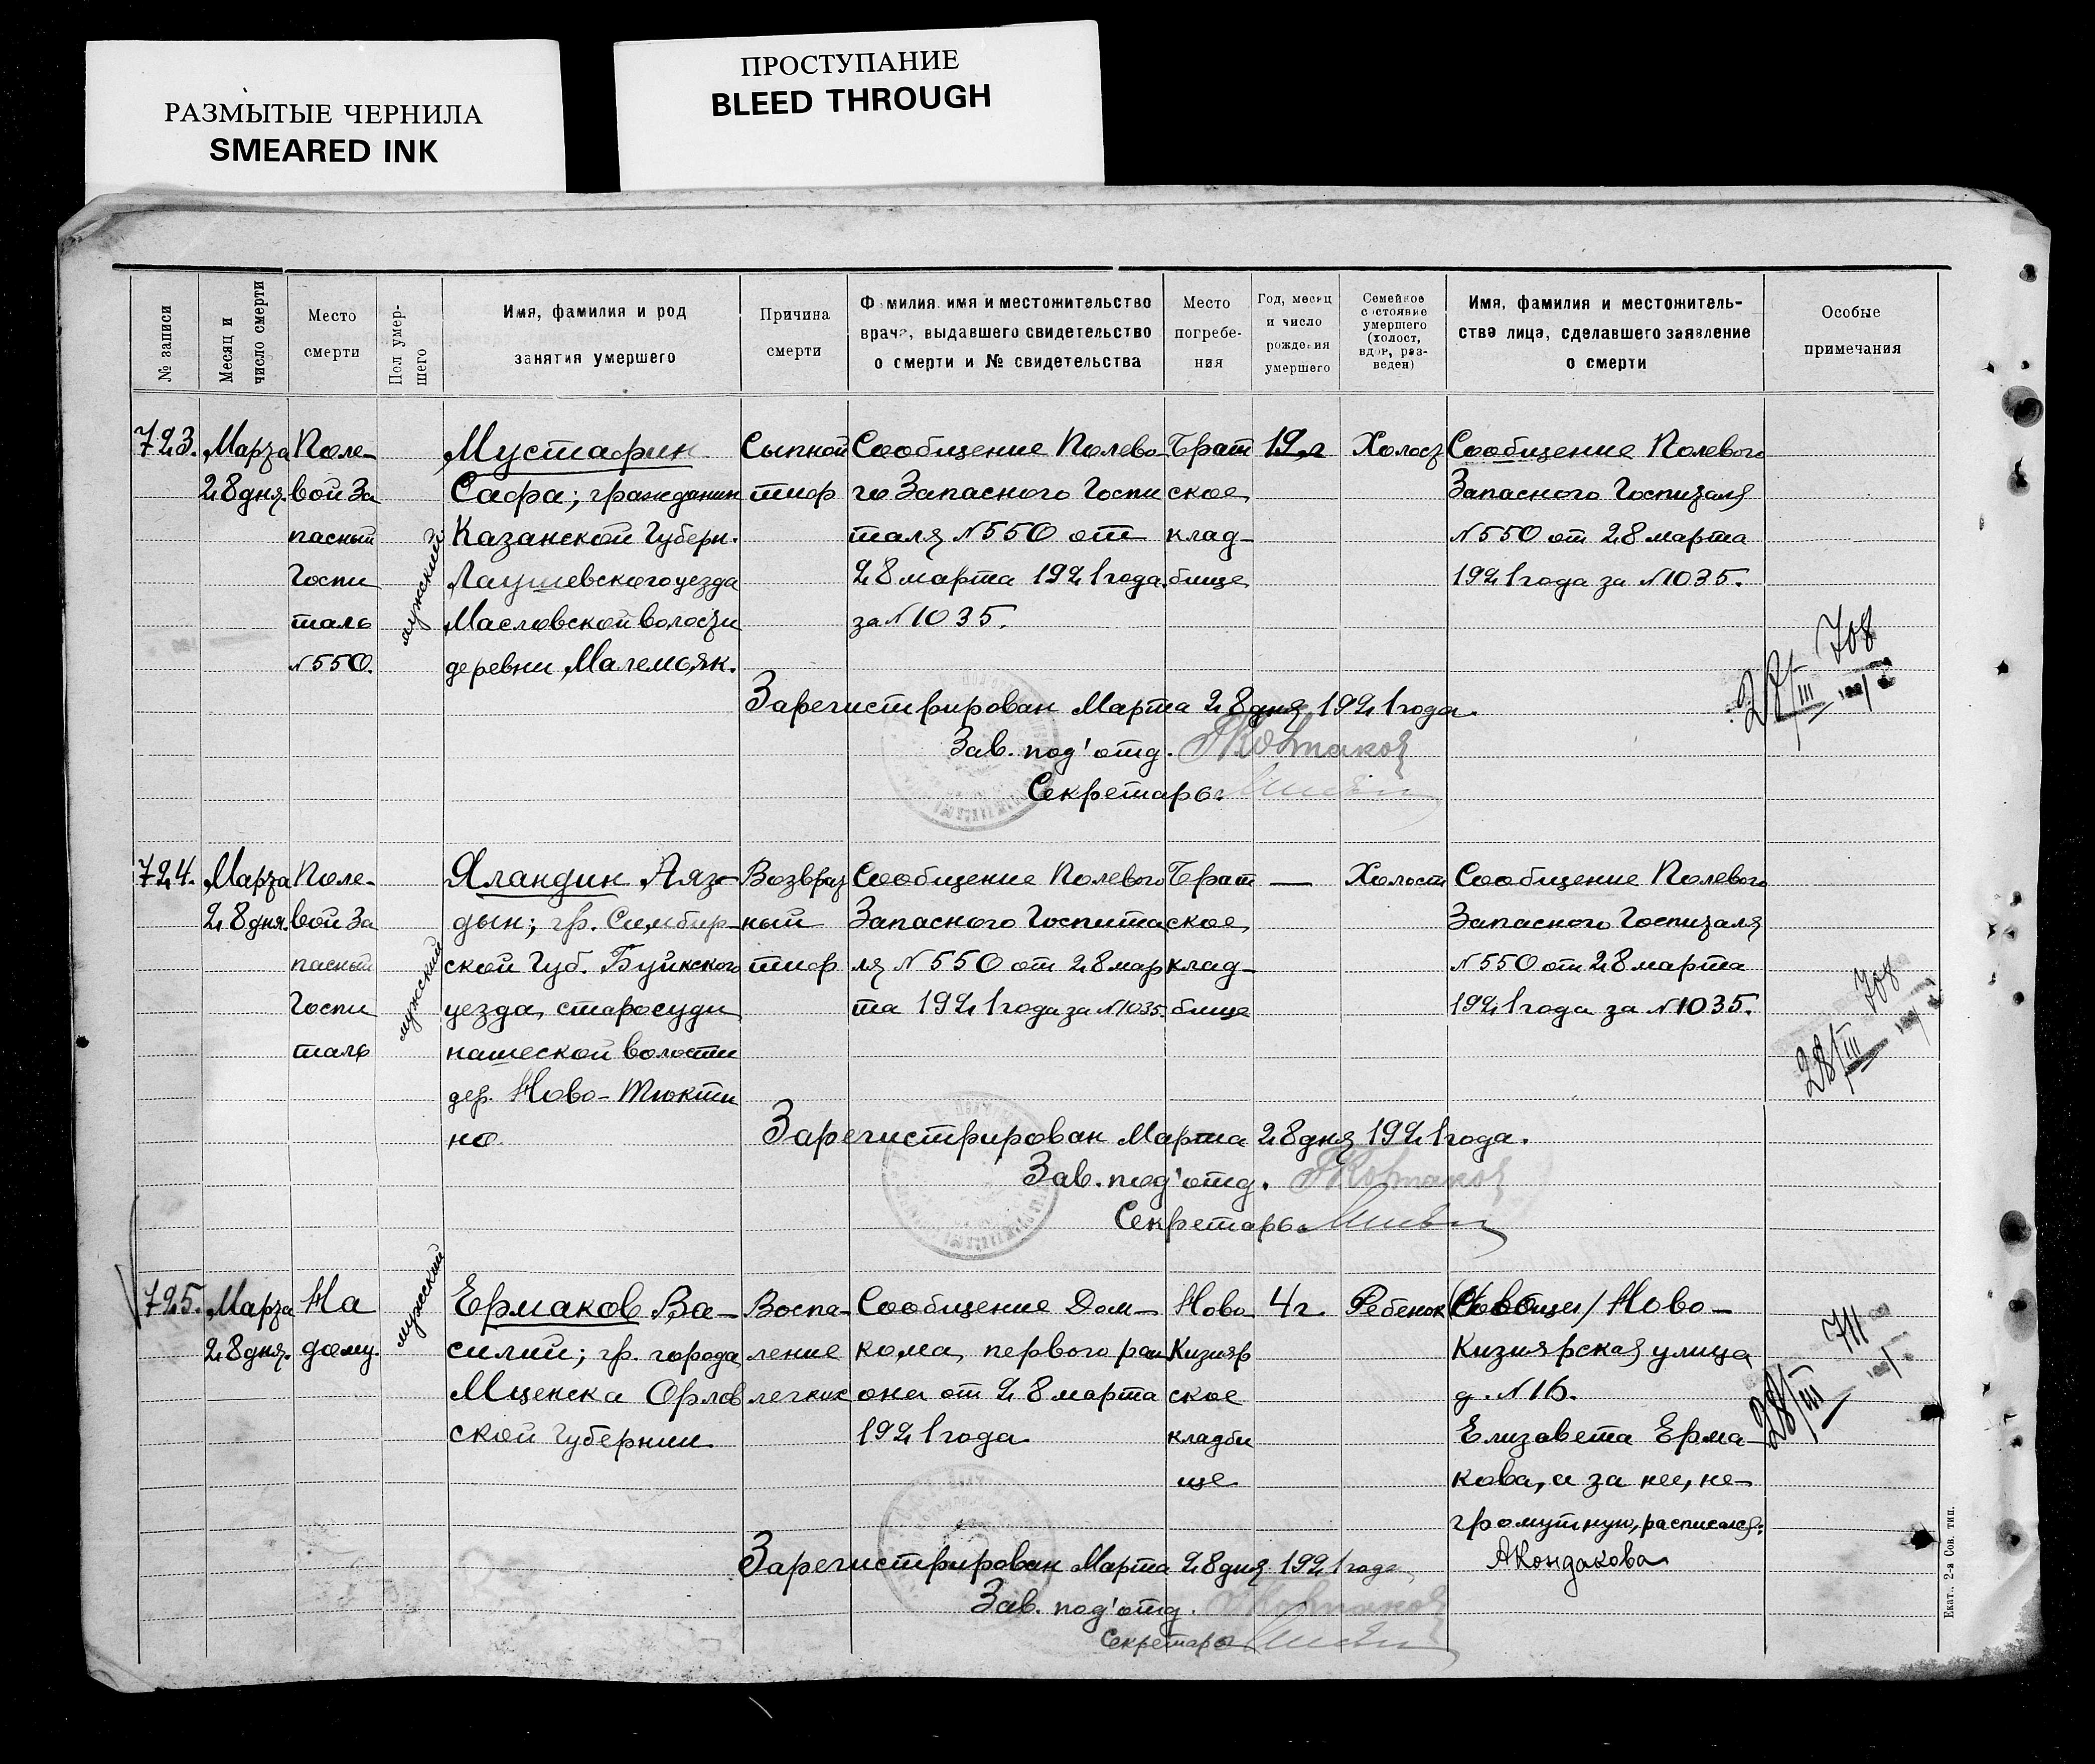 РАЗМЫТЫЕ ЧЕРНИЛА
SMEARED INK
ПРОСТУПАНИЕ
BLEED THROUGH
№ записи
Месяц и
число смерти
Место
смерти
Пол умер-
шего
Имя, фамилия и род
занятия умершего
Причина
смерти
Фамилия, имя и местожительство
врача, выдавшего свидетельство
о смерти и № свидетельства
Место
погребе-
ния
Год, месяц
и число
рождения
умершего
Семейное
состояние
умершего
(холост,
вдов, раз-
веден)
Имя, фамилия и местожитель-
ства лица, сделавшего заявление
о смерти
Особые
примечания
723.
Марта
28 дня.
Поле-
вой За
пасный
Госпи
таль
№ 550.
мужский
Мустафин
Сафа; гражданин
Казанской Губерн.
Лаушевского уезда
Масловской волости
деревни
Сыпной
тиф
Сообщение Полево
го Запасного Госпи
таля № 550 от
28 марта 1921 года.
за № 1035.
Брат
ское
клад-
бище
19 л
Холост
Сообщение Полевого
Запасного Госпиталя
№ 550 от 28 марта
1921 года за № 1035.
708
28/III
Зарегистрирован Марта 28 дня 1921 года.
Зав. под'отд.
Секретарь
724.
Марта
28 дня.
Поле-
вой За
пасный
Госпи
таль
мужский
Яландин Аяз-
дын; гр. Симбир-
ской Губ. Буинского
уезда, старосуди
нашеской волости
дер. Ново-Тюкти
но.
Возврат
ный
тиф
Сообщение Полевого
Запасного Госпита
ля № 550 от 28 мар
та 1921 года за № 1035.
Брат
ское
клад-
бище
—
Холост
Сообщение Полевого
Запасного Госпиталя
№ 550 от 28 марта
1921 года за № 1035.
708
28/III
Зарегистрирован Марта 28 дня 1921 года.
Зав. под'отд.
Секретарь
725.
Марта
28 дня.
На
дому.
мужский
Ермаков Ва-
силий; гр. города
Мценска Орлов
ской Губернии
Воспа-
ление
легких
Сообщение Дом-
кома, первого рай
она от 28 марта
1921 года
Ново
Кизияр
ское
кладби
ще
4 г.
Ребенок
Ново-
Кизиярская улица
д. № 16.
Елизавета Ерма-
кова, а за нее, не-
громутную, расписался:
АКондакова
711
28/III
Зарегистрирован Марта 28 дня 1921 года
Зав. под'отд.
Секретарь
Екат.. 2-я Сов. тип.